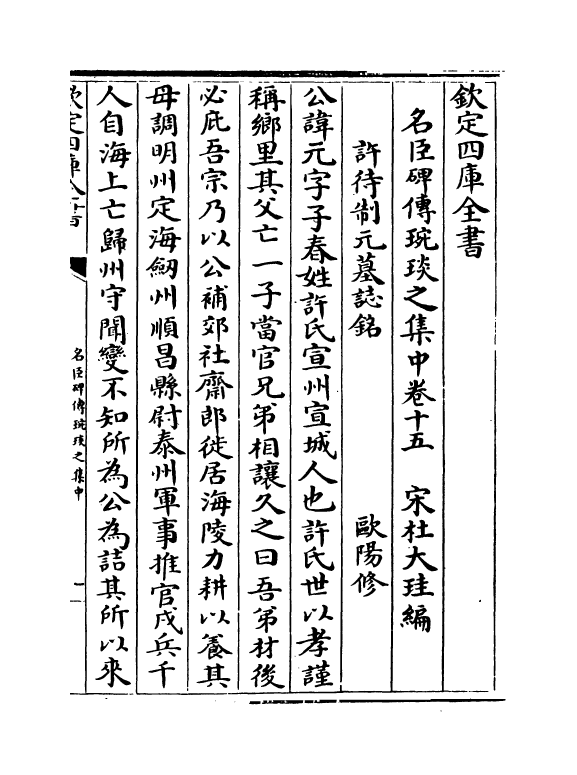 欽定四庫全書
名臣碑傳琬琰之集中卷十五　宋杜大珪編
許待制元墓誌銘　歐陽修
公諱元字子春姓許氏宣州宣城人也許氏世以孝謹
稱鄉里其父亡一子當官兄弟相讓久之曰吾弟材後
必庇吾宗乃以公補郊社齋郎徙居海陵力耕以養其
母調明州定海劒州順昌縣尉泰州軍事推官戍兵千
人自海上亡歸州守聞變不知所為公為詰其所以來
欽定四庫全書
名臣碑傳琬琰之集中
一